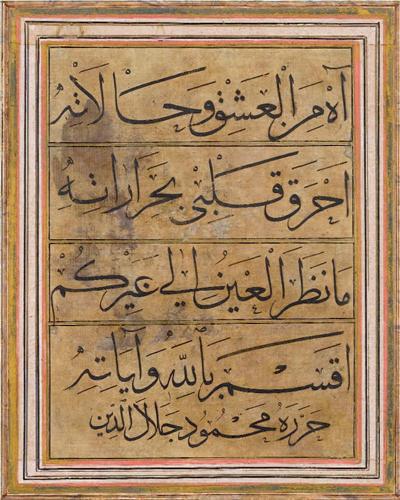 آه من العشق وحالاته
احرق قلبي بحراراته
ما نظر العين الي غيركم
اقسم بالله وآياته
حرره محمود جلال الدين